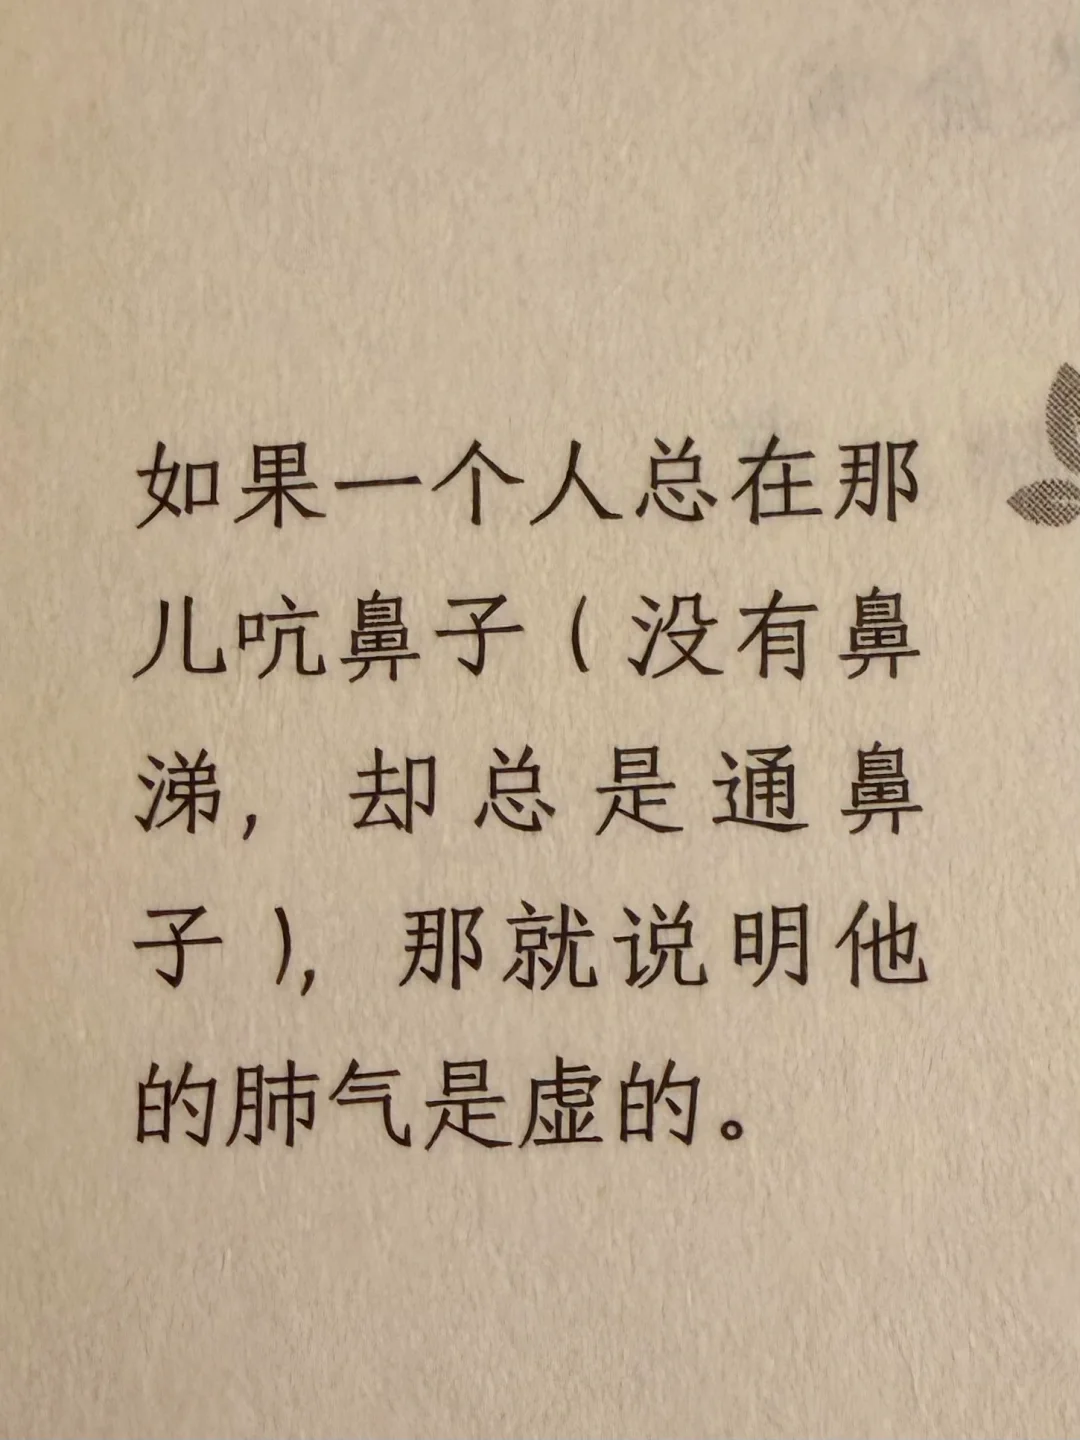 如果一个人总在那
儿吭鼻子（没有鼻
涕，却总是通鼻
子），那就说明他
的肺气是虚的。